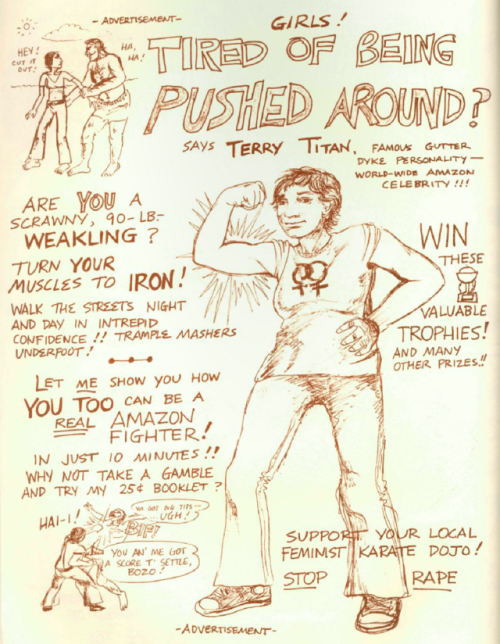 - ADVERTISEMENT-
GIRLS!
TIRED OF BEING
PUSHED AROUND?
HEY!
CUT IT
OUT!
HA,
HA!
SAYS TERRY TITAN, FAMOUS GUTTER
DYKE PERSONALITY—
WORLD-WIDE AMAZON
CELEBRITY!!!
ARE YOU A
SCRAWNY, 90-LB.-
WEAKLING?
TURN YOUR
MUSCLES TO IRON!
WALK THE STREETS NIGHT
AND DAY IN INTREPID
CONFIDENCE!! TRAMPLE MASHERS
UNDERFOOT!
WIN
THESE
VALUABLE
TROPHIES!
AND MANY
OTHER PRIZES!!
LET ME SHOW YOU HOW
YOU TOO CAN BE A
REAL AMAZON
FIGHTER!
IN JUST 10 MINUTES!!
WHY NOT TAKE A GAMBLE
AND TRY MY 25¢ BOOKLET?
HAI-I!
BIG TITS—
UGH!
BIFF
YOU AN' ME GOT
A SCORE T' SETTLE,
BOZO!
SUPPORT YOUR LOCAL
FEMINIST KARATE DOJO!
STOP RAPE
-ADVERTISEMENT-